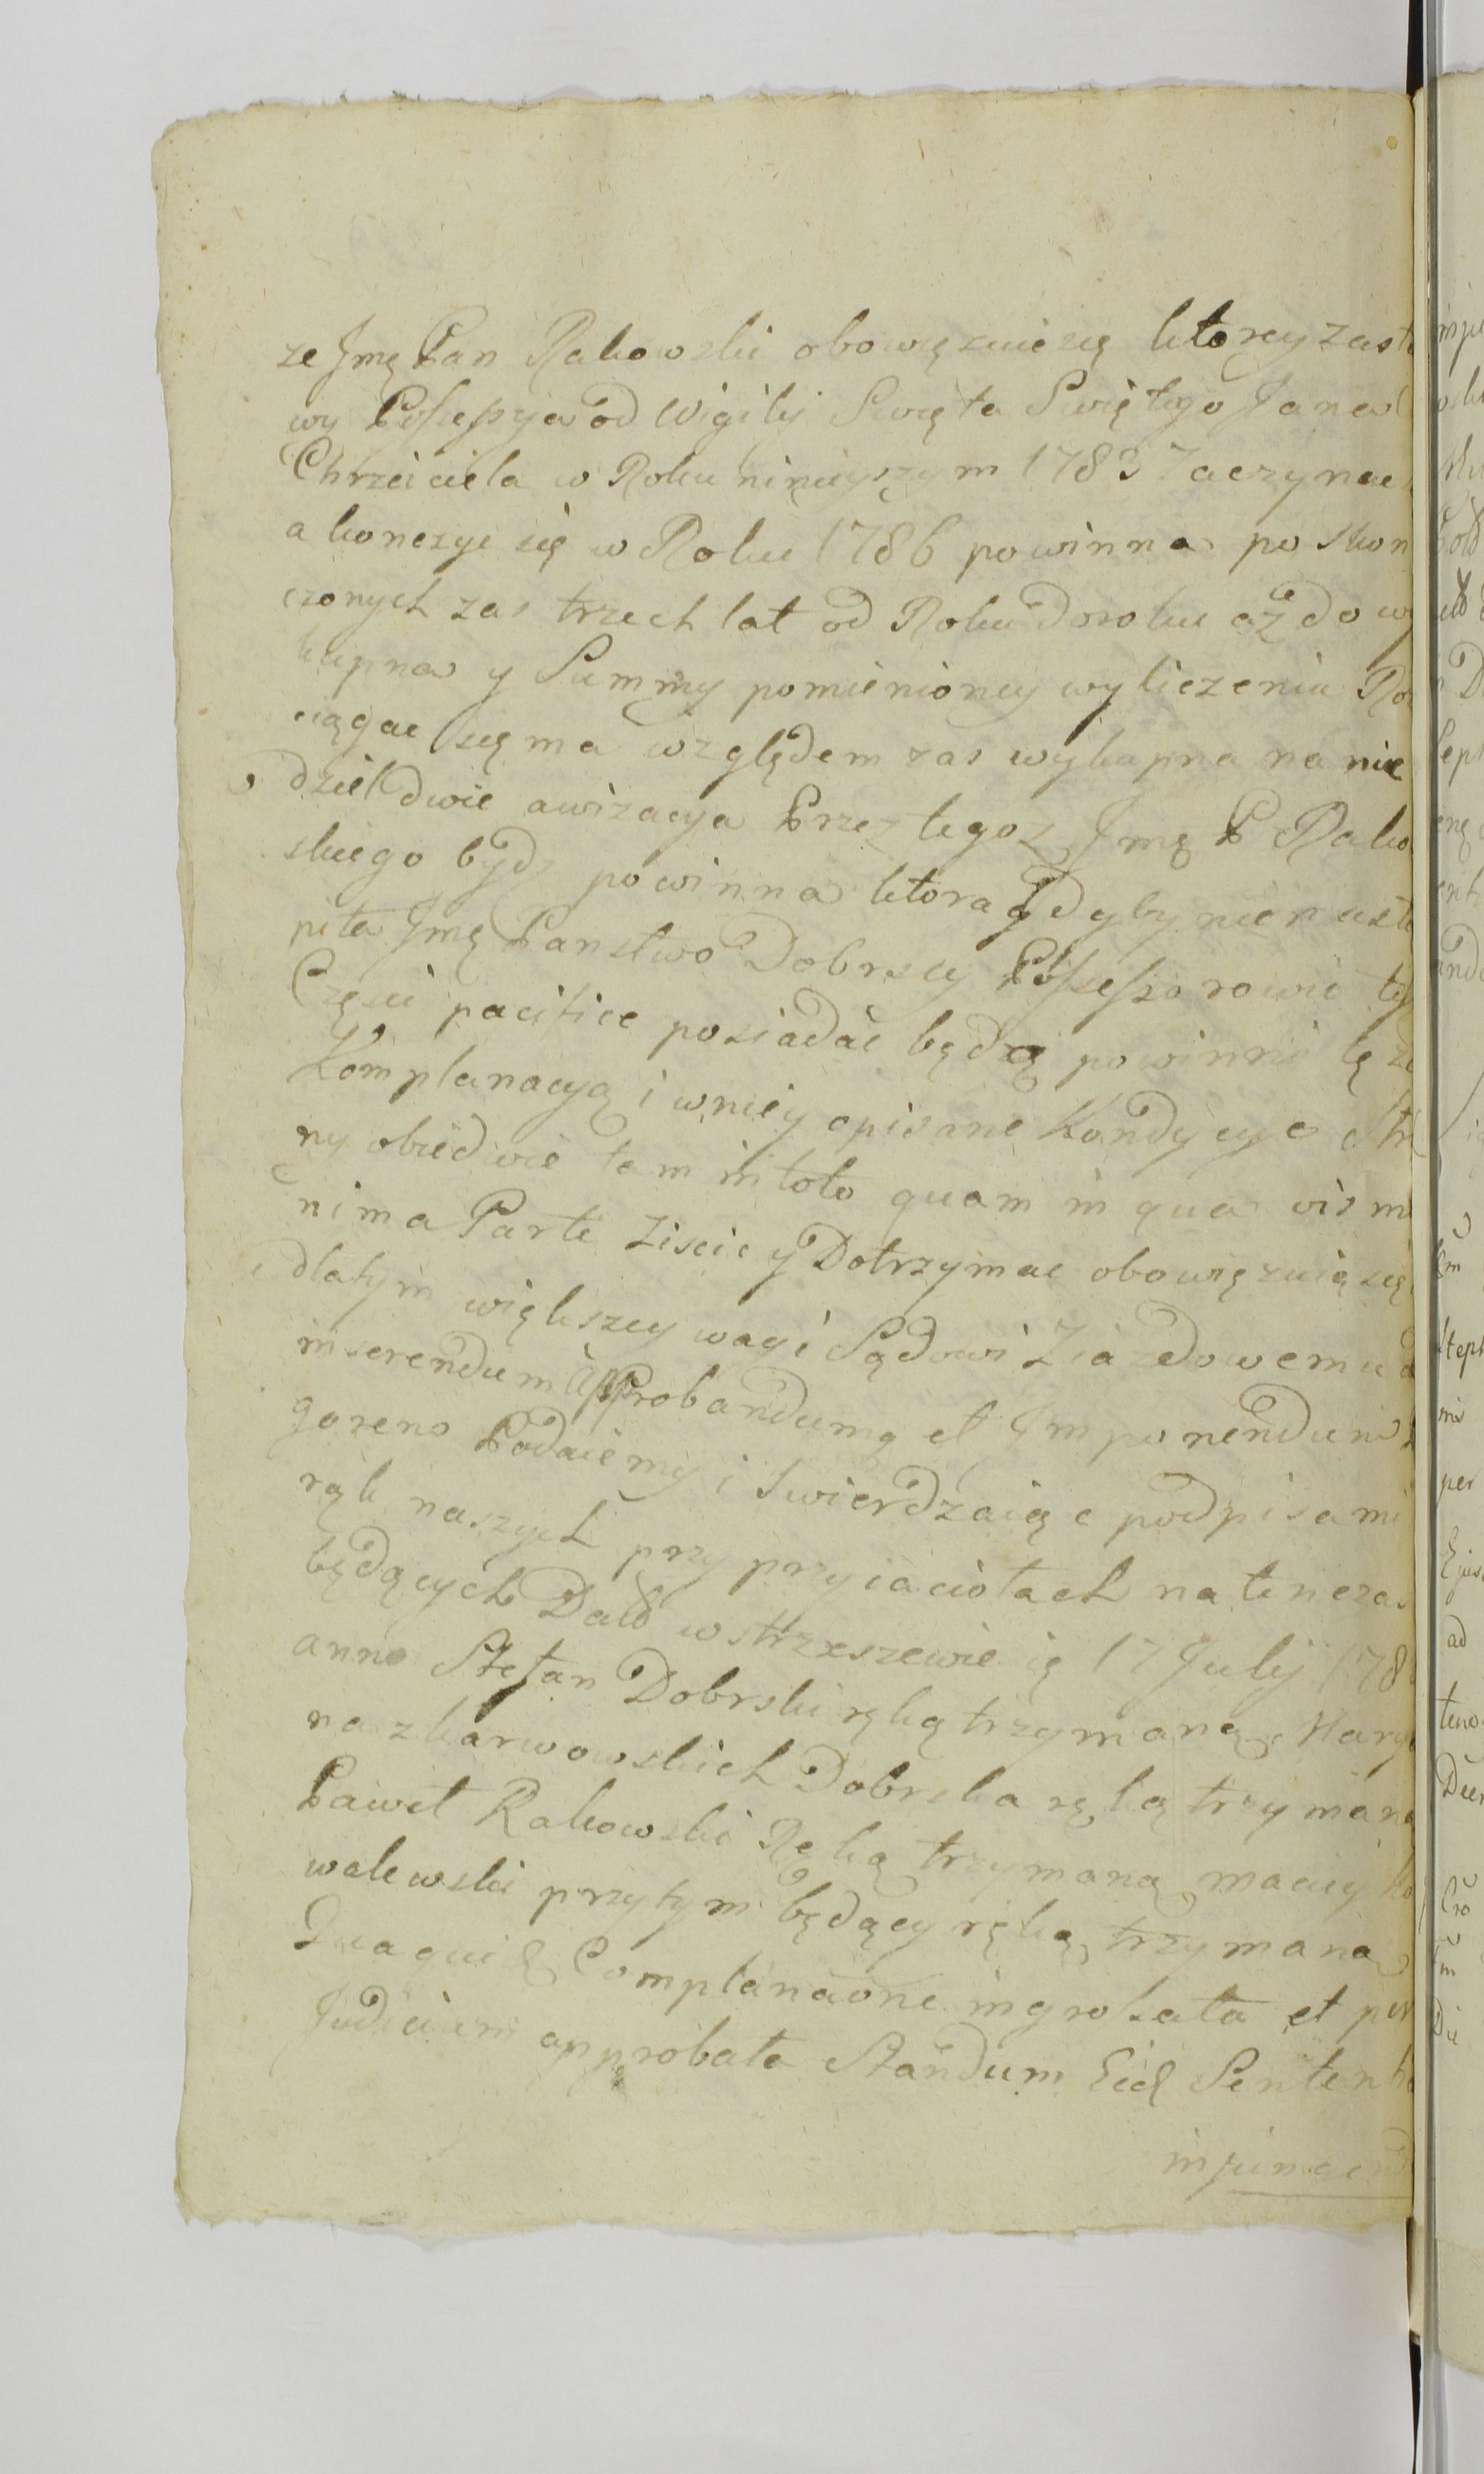 ze Jmę Pan Rakowski obowięzuie się ktorey zast
wy Possessya od Wigilij Święta Swiętego Jana
Chrzciciela w Roku ninieyszym 1783 Zaczynac
a konczyc się w Roku 1786 powinna po skon
czonych zas trzech lat od Roku do roku aż do wy
kupna y Summy pomienioney wyliczenia Ro
ciągac się ma względem zas wykupna na nie
dziel dwie awizacya Przez tegoz Jmę P Rako
skiego bydz powinna ktora gdyby nie nastą
piła Jmę Panstwo Dobrscy Possessorowie tey
Częsci pacifice posiadac będą powinni tę ze
Komplanacyą i w niey opisane Kondycye Stro
ny obiedwie tam in toto quam in qua vis mi
nima Parte Ziscic y Dotrzymac obowięzuią się
dla tym większey wagi Sądowi Ziazdowemu
inserendum Approbandumq et Imponendum
goreno Podaiemy i stwierdzaiąc podpisami
rąk naszych przy przyiaciołach na ten czas
będących Datt w strzeszewie 17 Julij 178
anno Stefan Dobrski ręką trzymaną, Mary
na z karwowskich Dobrska ręką trzymaną
Paweł Rakowski Ręką trzymaną maciey Ko
walewski przy tym będący ręką trzymaną
Qua quid Complanaone ingrossata et per
Judicium approbata Standum Eid Sententia